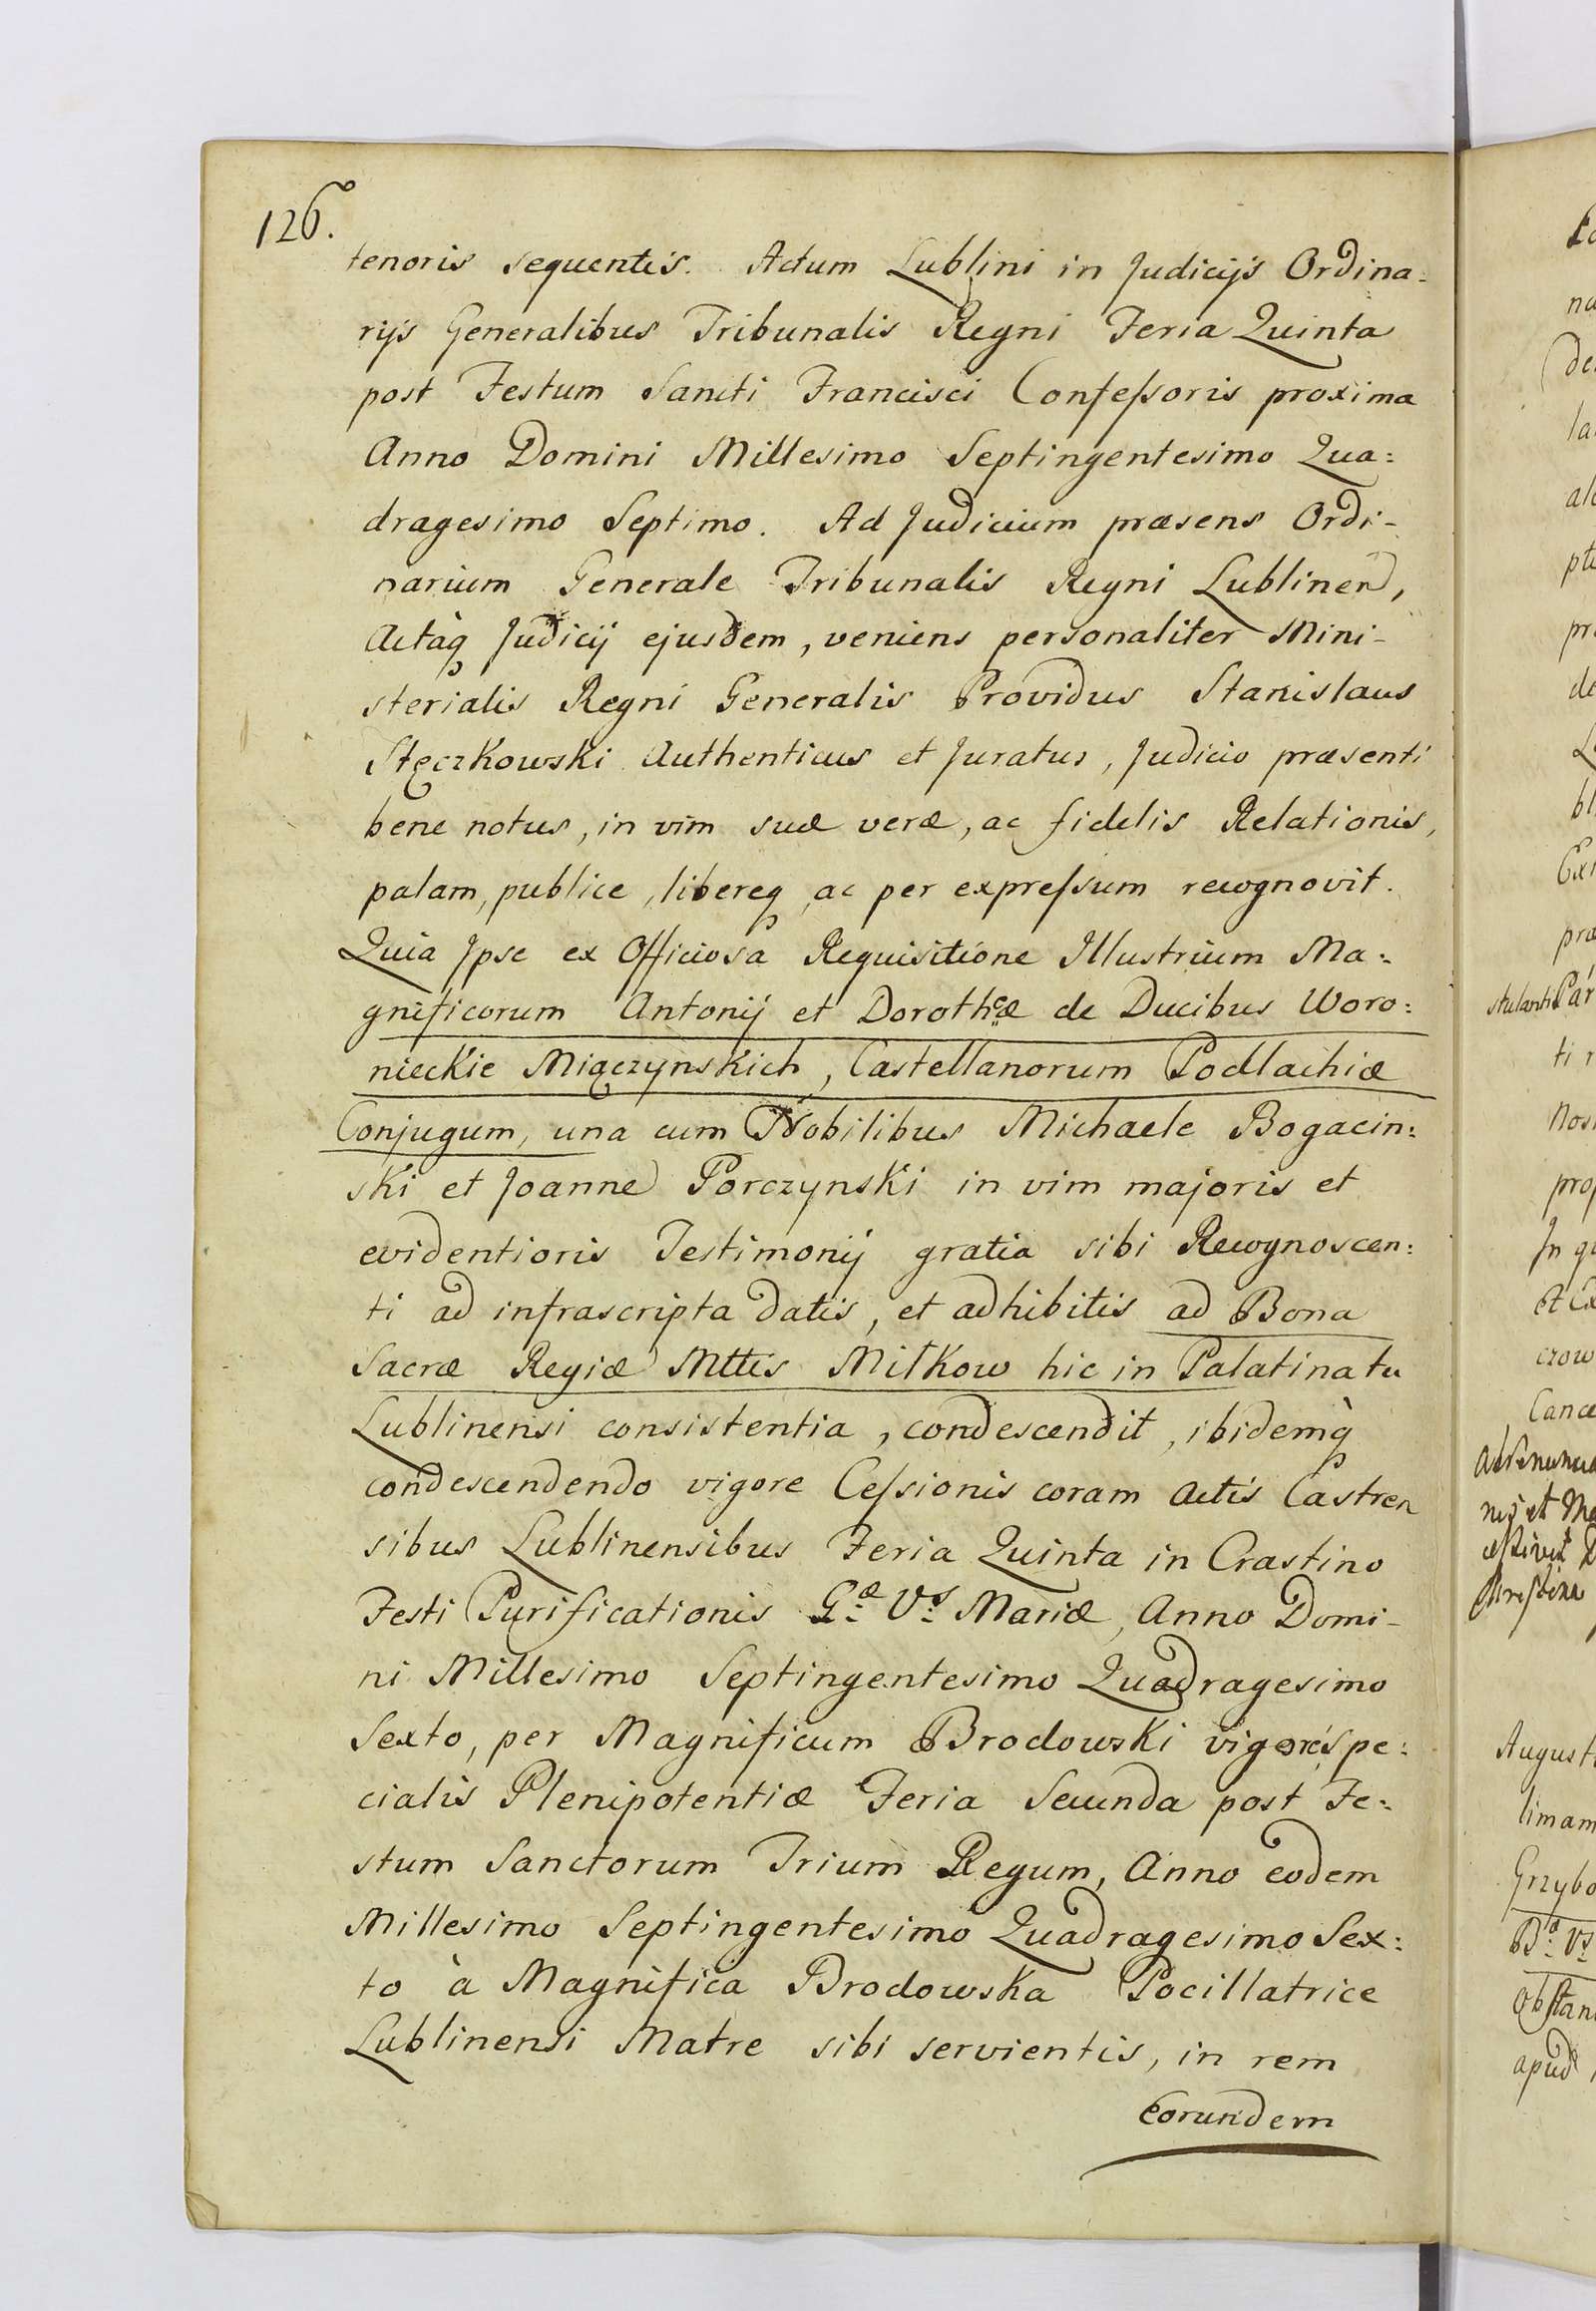 126.
tenoris sequentis. Actum Lublini in Judicijs Ordina=
rijs Generalibus Tribunalis Regni Feria Quinta
post Festum Sancti Francisci Confeſsoris proxima
Anno Domini Millesimo Septingentesimo Qua=
dragesimo Septimo. Ad Judicium præsens Ordi-
narium Generale Tribunalis Regni Lublinen,
Actàq Judicij ejusdem, veniens personaliter Mini-
sterialis Regni Generalis Providus Stanislaus
Stęczkowski Authenticus et Juratus, Judicio præsenti
bene notus, in vim suæ veræ, ac fidelis Relationis,
palam, publice, libereq, ac per expreſsum recognovit.
Quia Jpse ex Officiosa Requisitione Illustrium Ma=
gnificorum Antonij et Dorotheæ de Ducibus Woro=
nieckie Miączynskich, Castellanorum Podlachiæ
Conjugum, una cum Nobilibus Michaele Bogacin=
ski et Joanne Porczynski in vim majoris et
evidentioris Testimonij gratia sibi Recognoscen=
ti ad infrascripta datis, et adhibitis ad Bona
Sacræ Regiæ Mttis Miłkow hic in Palatinatu
Lublinensi consistentia, condescendit, ibidemq̀
condescendendo vigore Ceſsionis coram Actis Castren
sibus Lublinensibus Feria Quinta in Crastino
Festi Purificationis Gæ Vs Mariæ, Anno Domi-
ni Millesimo Septingentesimo Quadragesimo
Sexto, per Magnificum Brodowski vigore spe=
cialis Plenipotentiæ Feria Secunda post Fe=
stum Sanctorum Trium Regum, Anno eodem
Millesimo Septingentesimo Quadragesimo Sex=
to à Magnifica Brodowska Pocillatrice
Lublinensi Matre sibi servientis, in rem
eorundem